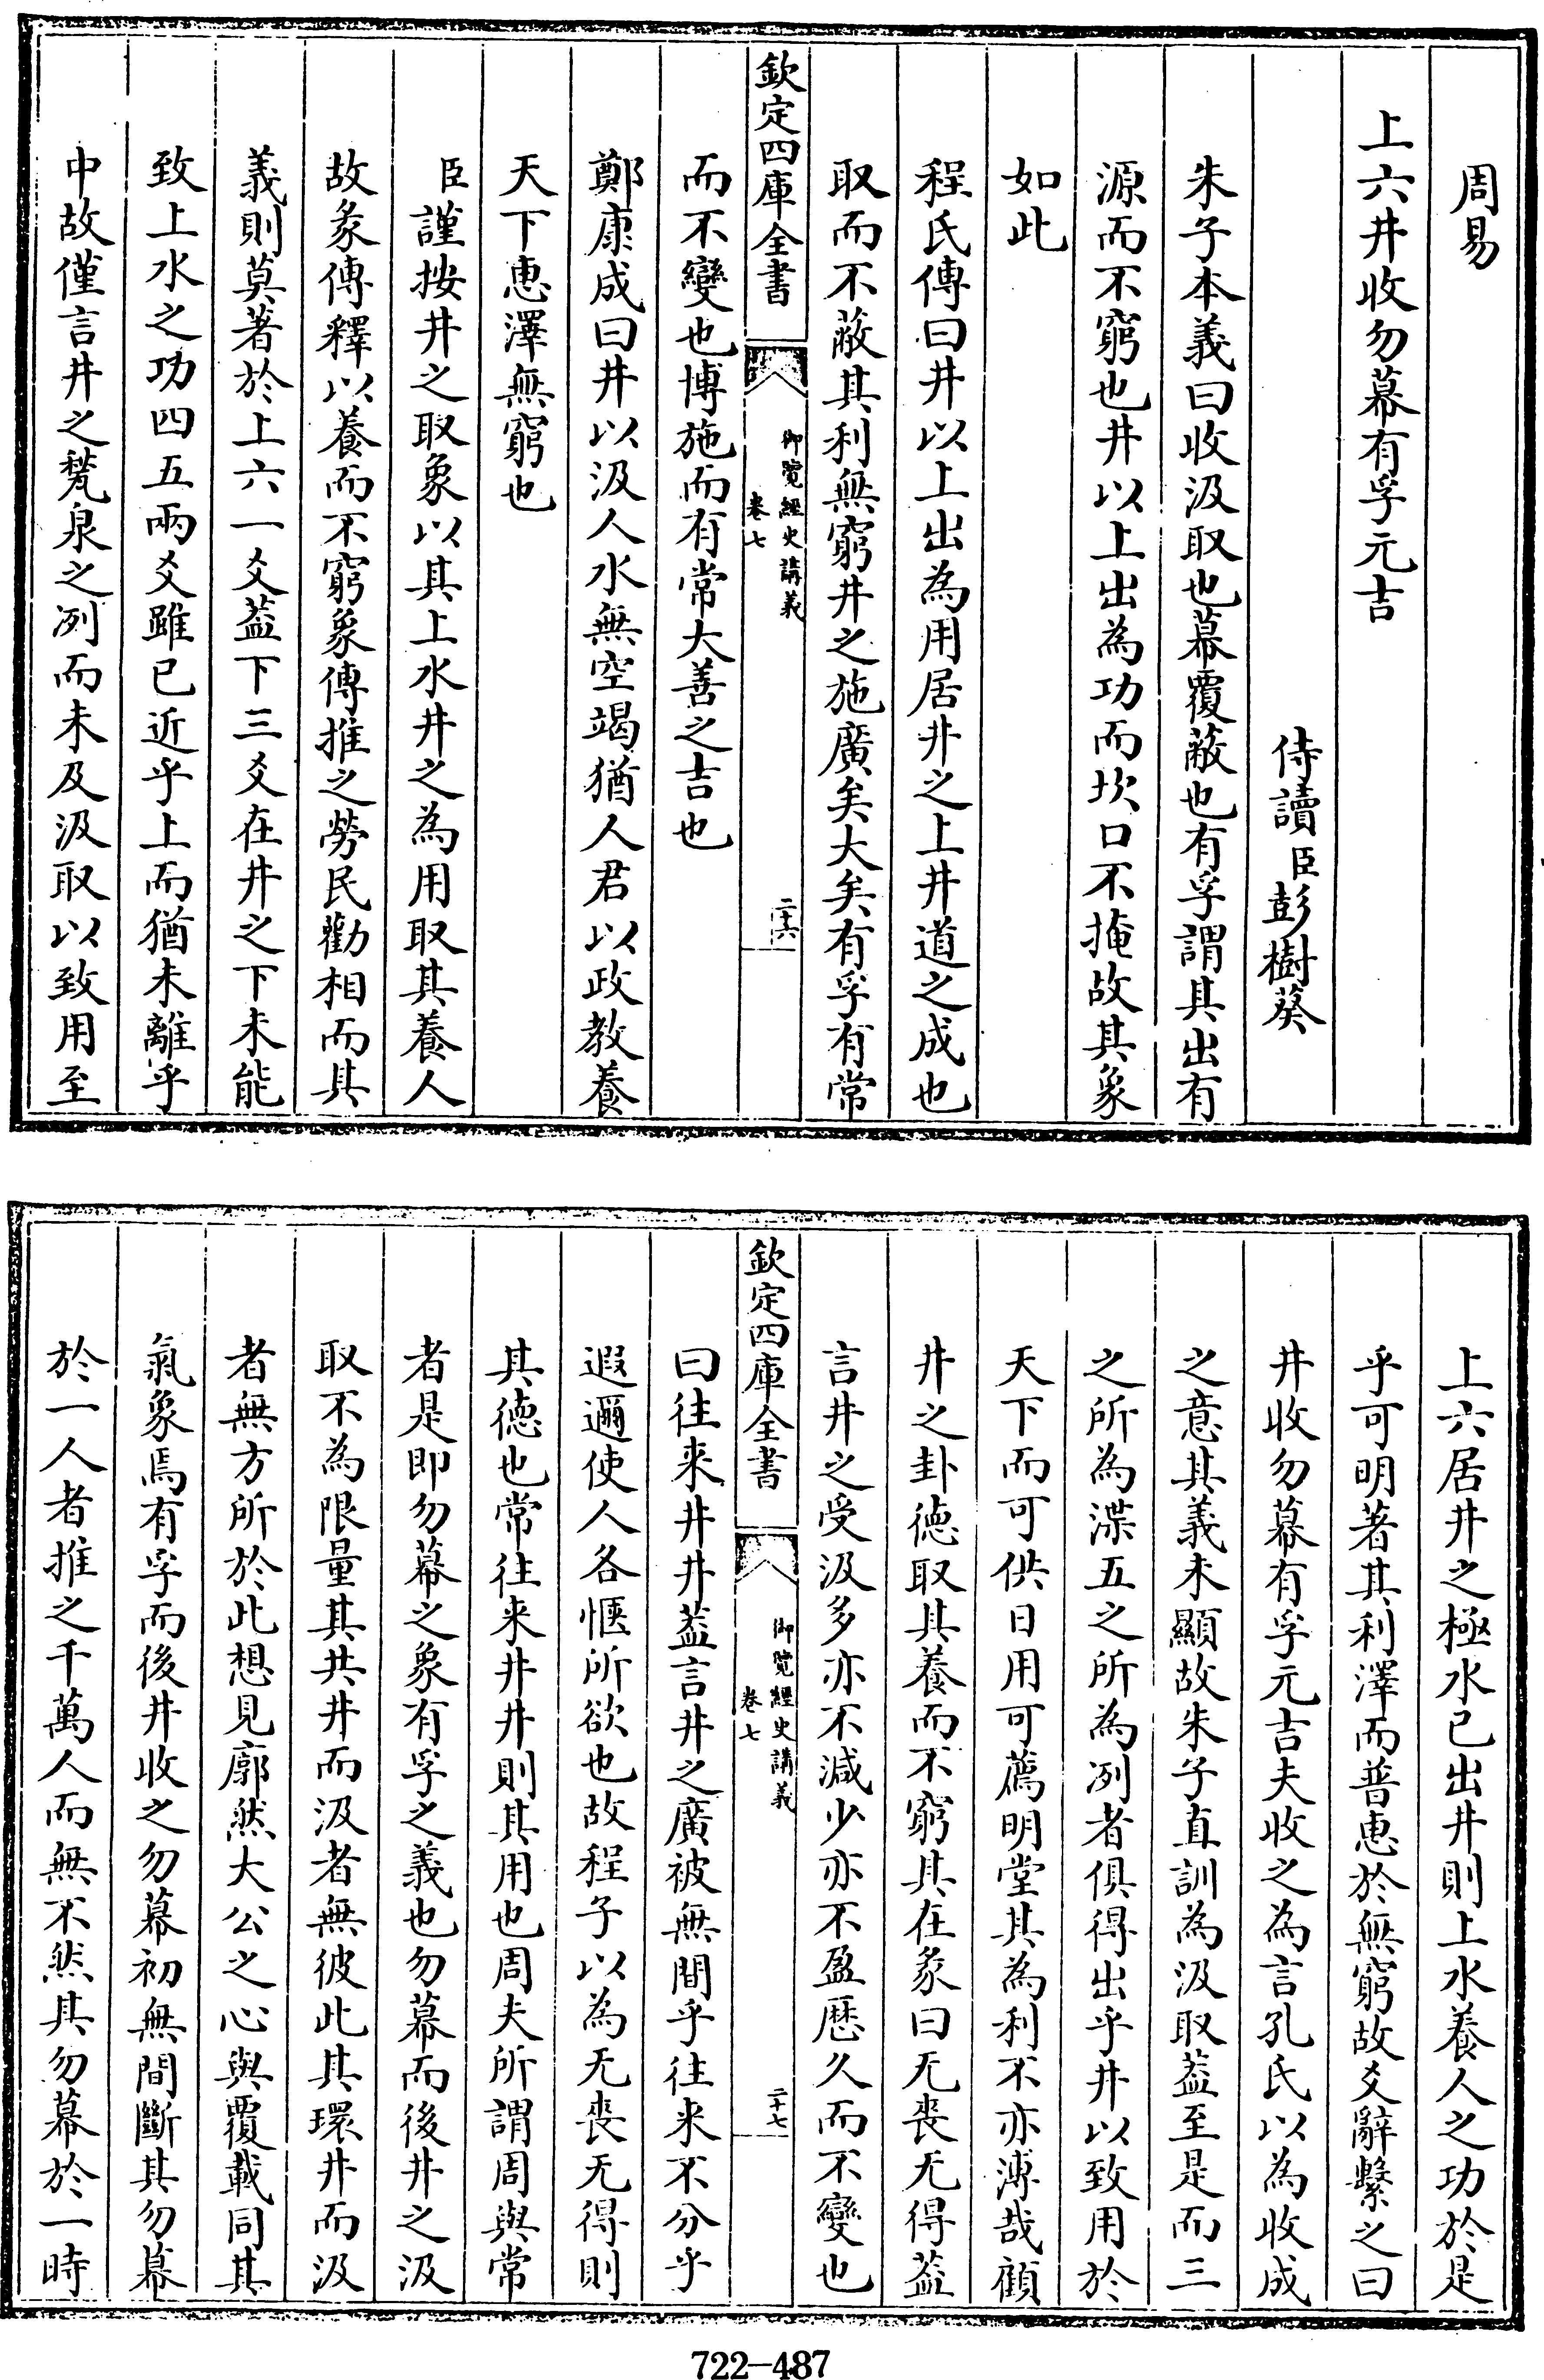 周易
上六井收勿幕有孚元吉
侍讀臣彭樹葵
朱子本義曰收汲取也幕覆蔽也有孚謂其出有
源而不窮也井以上出為功而坎口不掩故其象
如此
程氏傳曰井以上出為用居井之上井道之成也
取而不蔽其利無窮井之施廣矣大矣有孚有常
欽定四庫全書
御覽經史講義
卷七
二十六
而不變也博施而有常大善之吉也
鄭康成曰井以汲人水無空竭猶人君以政教養
天下惠澤無窮也
臣謹按井之取象以其上水井之為用取其養人
故彖傳釋以養而不窮象傳推之勞民勸相而其
義則莫著於上六一爻葢下三爻在井之下未能
致上水之功四五兩爻雖已近乎上而猶未離乎
中故僅言井之甃泉之冽而未及汲取以致用至
上六居井之極水已出井則上水養人之功於是
乎可明著其利澤而普惠於無窮故爻辭繫之曰
井收勿幕有孚元吉夫收之為言孔氏以為收成
之意其義未顯故朱子直訓為汲取葢至是而三
之所為渫五之所為冽者俱得出乎井以致用於
天下而可供日用可薦明堂其為利不亦溥哉顧
井之卦德取其養而不窮其在彖曰无喪无得葢
言井之受汲多亦不減少亦不盈歷久而不變也
欽定四庫全書
御覽經史講義
卷七
二十七
曰往來井井葢言井之廣被無間乎往來不分乎
遐邇使人各愜所欲也故程子以為无喪无得則
其德也常往來井井則其用也周夫所謂周與常
者是即勿幕之象有孚之義也勿幕而後井之汲
取不為限量其共井而汲者無彼此其環井而汲
者無方所於此想見廓然大公之心與覆載同其
氣象焉有孚而後井收之勿幕初無間斷其勿幕
於一人者推之千萬人而無不然其勿幕於一時
722-487